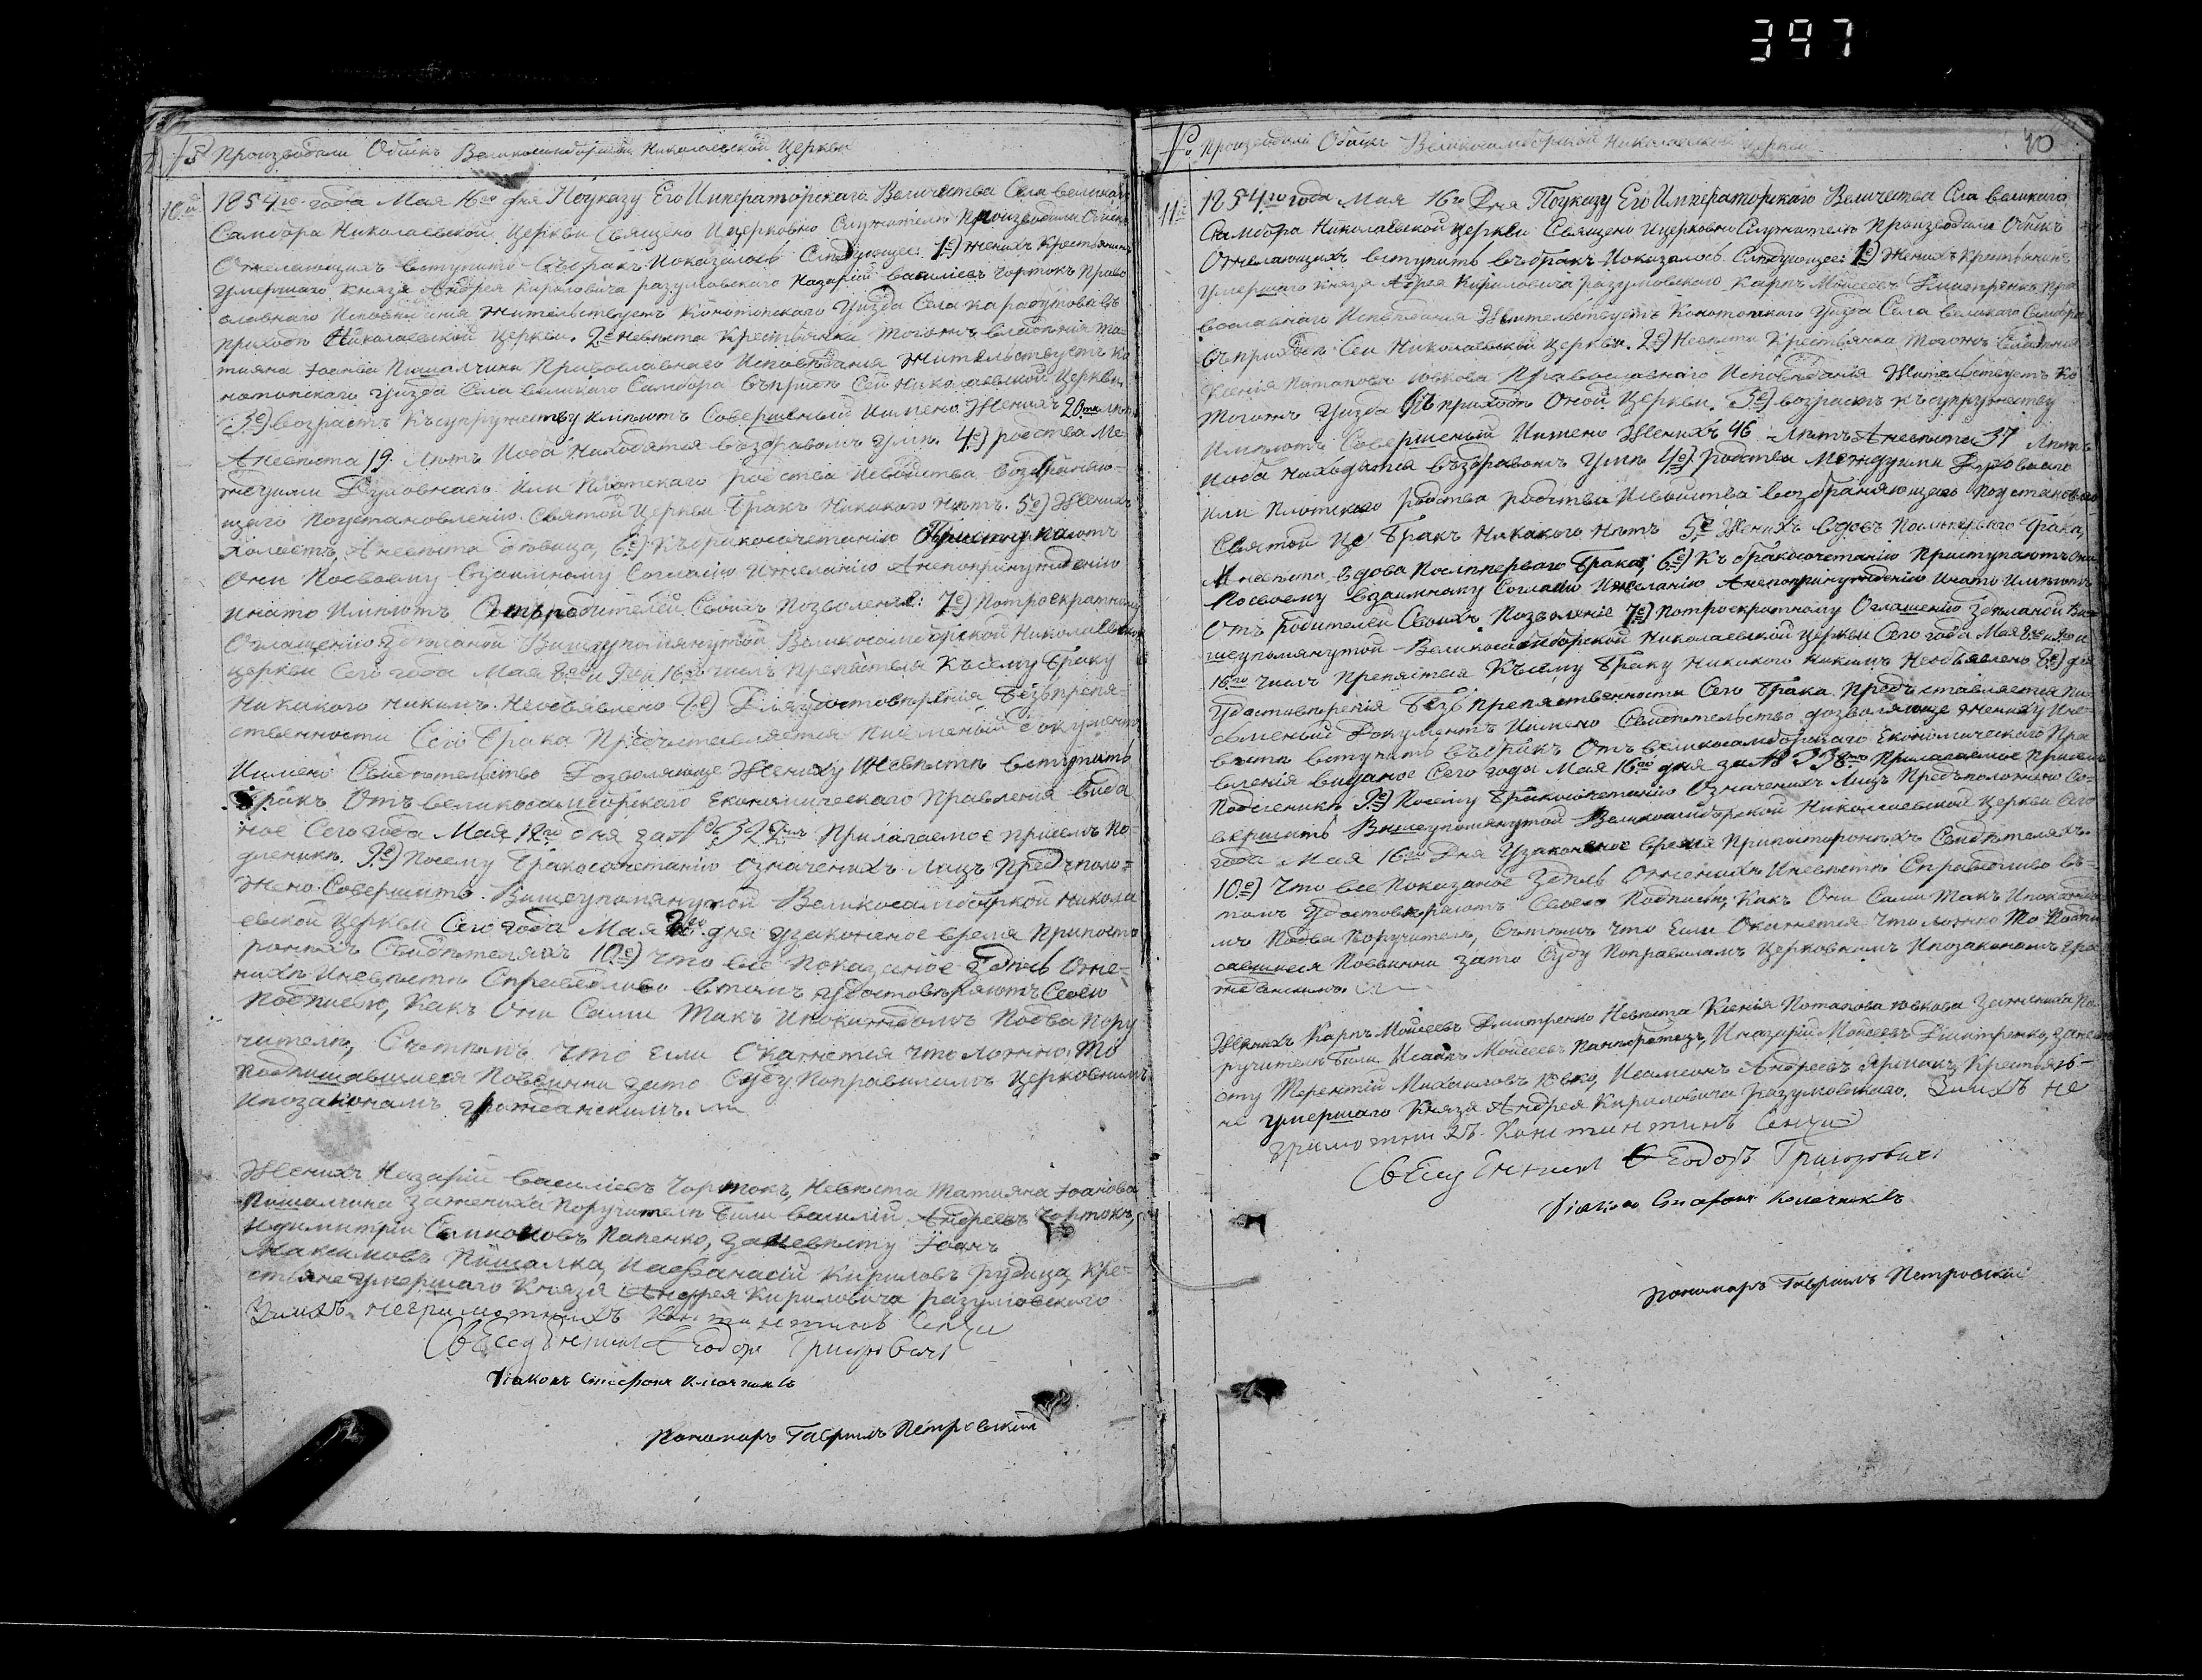 397
Производили Обискъ Великосамборской Николаевской Церкви
10й
1854го года Мая 16го дня Поуказу Его Императорскаго Величества Села великаго
Самбора Николаевской Церкви Священо Ицерковно Служители Производили Обискъ
Ожелающихъ вступить въбракъ Иоказалось Следующее: 1е) женихъ Крестьянинъ
умершаго Князя Андрея Кириловича разумовского Назарий васильевъ Чортокъ Право
славнаго Исповедания жительствуетъ Конотопского Уизда Села карабутова въ
приходе Николаевской Церкви. 2е Невеста Крестьянка Тогожъ владения та-
тияна Іоанова Пишалчина Православнаго Исповедания Жительствуетъ Ко
нотопского Уизда Села великаго Самбора въприходе Сей Николаевской Церкви.
3е) возрастъ Късупружеству имеютъ Совершеный Имено Женихъ 20ть летъ
Аневеста 19 Летъ Иоба Находятся въздравомъ уме. 4е) родства Ме-
ждуими Духовнаго Или Плотскаго родства Исвойства возбраняю-
щаго Поустановлению Святой Церкви Бракъ Никакого Нетъ. 5е) Женихъ
Холостъ, Аневеста девица, 6е) Къбракосочетанию Приступаютъ
Они Посвоему Взаимному Согласию Ижеланию Анепопринуждению
Инато Имеютъ Отъродителей Своихъ Позволение: 7е) Потроекратному
Оглашению зделаной Вишеупомянутой Великосамборской Николаевской
церкви Сего года Мая 8го и 9го и 16го числъ Препятвия Късему Браку
Никакого никимъ Необъявлено 8е) Для удостоверения Безпрепя-
ственности Сего Брака Предъставляется Писменый Документъ
Имено Свидетельство Дозволяюще Жениху Иневести вступить
бракъ Отъ великосамборского Економического Правления вида
ное Сего года Мая 12го дня за № 322мъ Прилагаемое присемъ По-
дленике. 9е) Посему Бракосочетанию означенихъ Лицъ Предъполо-
жено Совершить Вишеупомянутой Великосамборской Никола
евской Церкви Сего года Мая дня узаконеное время Припосто
роннхъ Свидетеляхъ 10е) что все Показаное Здесь Оже-
нихе Иневести Справедливо втомъ удостоверяютъ Своею
Подписью, Какъ Они Сами Такъ Ипокаждомъ Подва Пору
чителя, Сътемъ что Если Окажется что ложно То
Подписавшиеся Повинни зато Суду Поправиламъ Церковнимъ
Ипозаконамъ гражданскимъ.
Женихъ Назарий васильевъ Чортокъ, Невеста Татияна Іоанова
Пишалчина Зажениха Поручители Били василий Андреевъ Чортокъ,
Идимитрий Семионовъ Папенко, заневесту Іоанъ
Максимовъ Пишалка, Иафанасий Кириловъ рудица, Кре-
стьяне умершаго Князя Андрея Кириловича разумовского
Зиихъ неграмотнихъ Константинъ
Федоръ Григоровичъ
Діаконъ Стефанъ
Пономаръ Гавриилъ Петровский
40
Производили Обискъ Великосамборской Николаевской Церкви
11й
1854го года Мая 16го Дня Поуказу Его Императорскаго Величества Села великаго
Самбора Николаевской Церкви Священо Ицерковно Служители Производили Обискъ
Ожелающихъ вступить въбракъ Иоказалось Следующее: 1е) Женихъ Крестьянинъ
умершаго Князя Андрея Кириловича разумовского Карпъ Моисеевъ Димитренко, пра
вославнаго Исповедания Жительствуетъ Конотопского Уизда Села великаго Самбора
въприходе Сей Николаевской Церкви. 2е) Невеста Крестьянка Тогожъ владения
Ксения Потапова Ювкова Православнаго Исповедания Жительствуетъ Ко
Тогожъ Уизда Въприходе Оной Церкви. 3е) возрастъ късупружеству
Имеютъ Совершеный Имено Женихъ 46 Летъ Аневеста 37 Летъ
Иоба находятся въздравомъ Уме 4е) родства Междуими Духовнаго
или Плотскаго родства родства Исвойства возбраняющаго Поустановлению
Святой Це Бракъ Никакого Нетъ 5е Женихъ вдовъ Послепервого брака,
Аневеста вдова Послепервого брака, 6е) Къ бракосочетанию Приступаютъ Они
Посвоему взаимному Согласию Ижеланию Анепопринуждению Инато Имеютъ
Отъ Родителей Своихъ Позволение 7е) Потроекратному Оглашению Зделаной Ви-
шеупомянутой Великосамборской Николаевской церкви Сего года Мая 8го и 9го и
16го Числъ Препятвия Късему Браку Никакого Никимъ Необъявлено 8е) для
Удостоверения Безъ препятвенности Сего Брака Предъставляется Пи-
сменый Документъ Имено Свидетельство дозволяюще жениху Ине-
вести вступить въбракъ Отъ великосамборского Економического Пра
вления виданое Сего года Мая 16го дня за № 338мъ Прилагаемое Присемъ
Подленике 9е) Посему Бракосочетанию Означенихъ Лицъ Предъположено Со-
вершить Вишеупомянутой Великосамборской Николаевской Церкви Сего
года Мая 16го Дня Узаконеное время Припостороннхъ Свидетеляхъ.
10е) Что все Показаное Здесь Оженихе Иневести Справедливо въ-
томъ Удостоверяютъ Своею Подписью, Какъ Они Сами Такъ Ипокаждо
мъ Подва Поручителя, Сътемъ что Если Окажется что ложно То Подпи
савшиеся Повинни зато Суду Поправиламъ Церковнимъ Ипозаконамъ гра
жданскимъ.
Женихъ Карпъ Моисеевъ Димитренко Невеста Ксения Потапова Ювкова Зажениха По-
ручители Били Исаакъ Моисеевъ Иназарий Моисеевъ Димитренко, заневе
сту Терентий Михаиловъ Ювко, Исамсонъ Андреевъ Ярмакъ, Крестьяне
не умершаго Князя Андрея Кириловича разумовского. Зиихъ не
грамотнихъ Константинъ
Федоръ Григоровичъ
Діаконъ Стефанъ
Пономаръ Гавриилъ Петровский